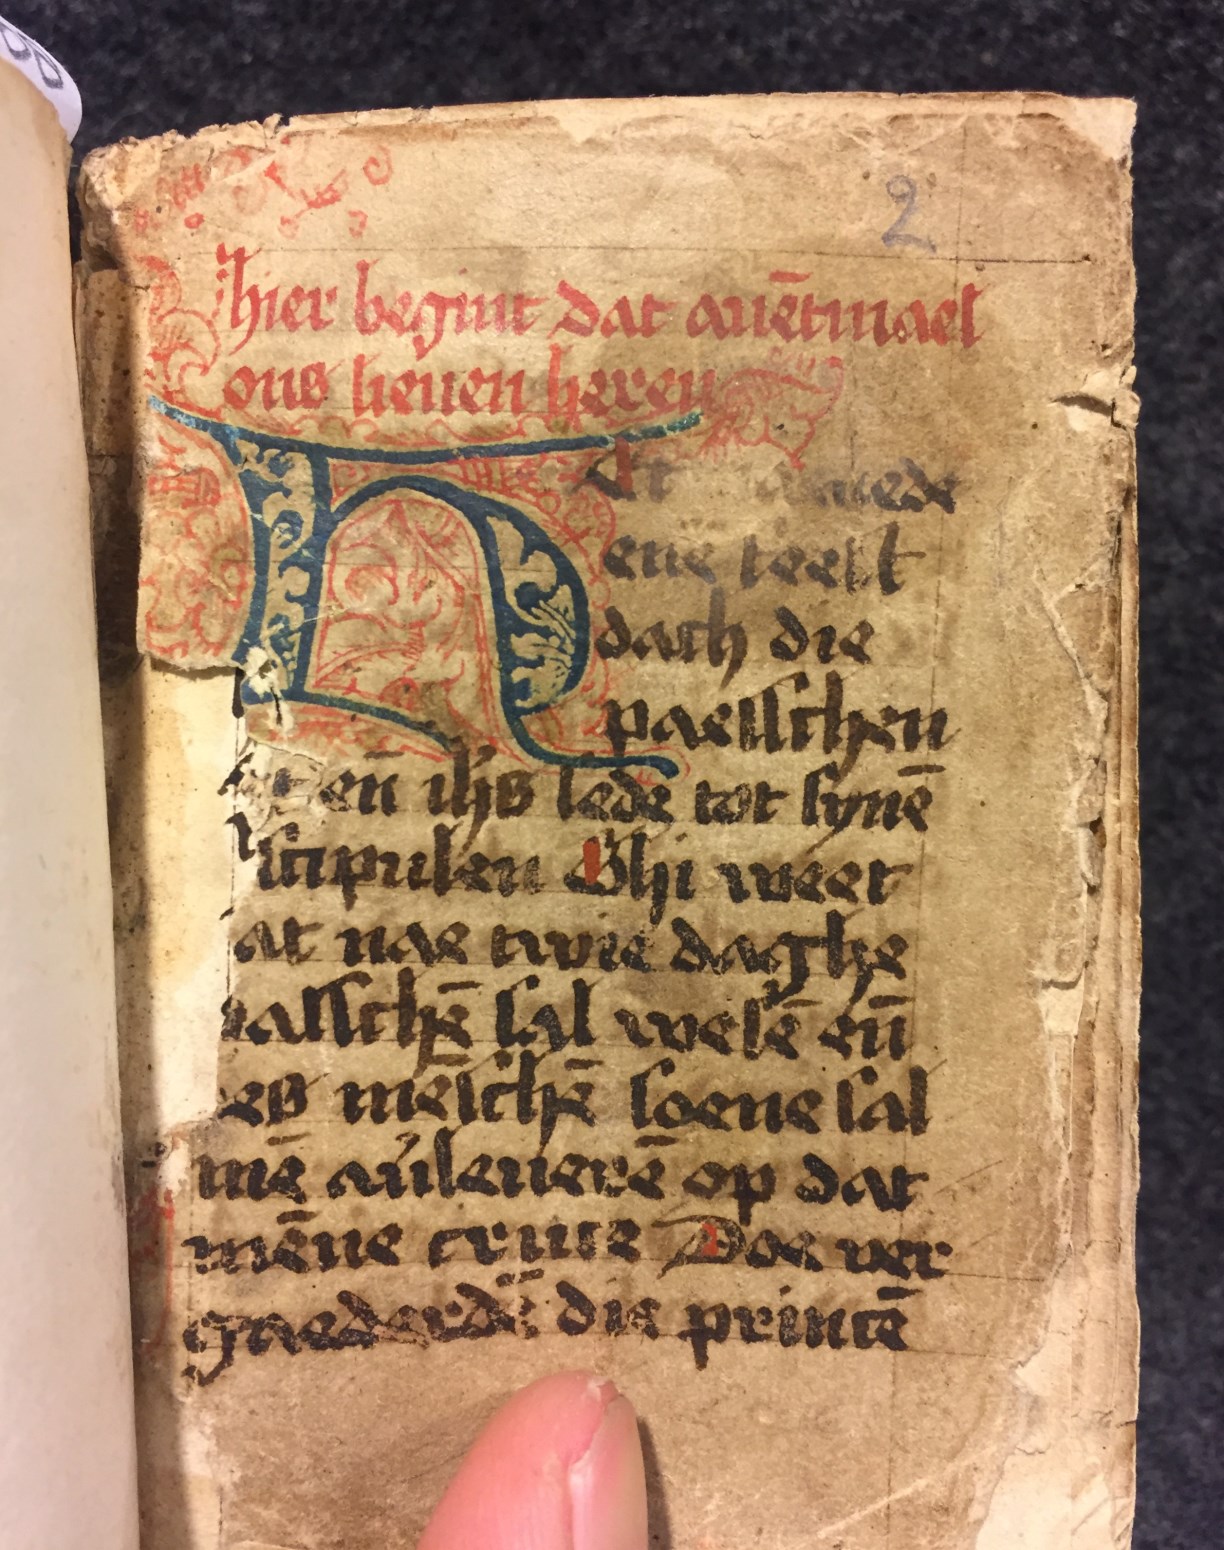 2
hier begint dat auētmael
ons lieuen heren
H et naede
ene feest
dach die
paesschen
eñ ihs sede tot synē
scipulen Ghi weet
at nae twie daghe
aesschē sal wesē eñ
es mēschē soene sal
mē ouerleuerē op dat
mēne cruce Doe ver
gaederdē die princē